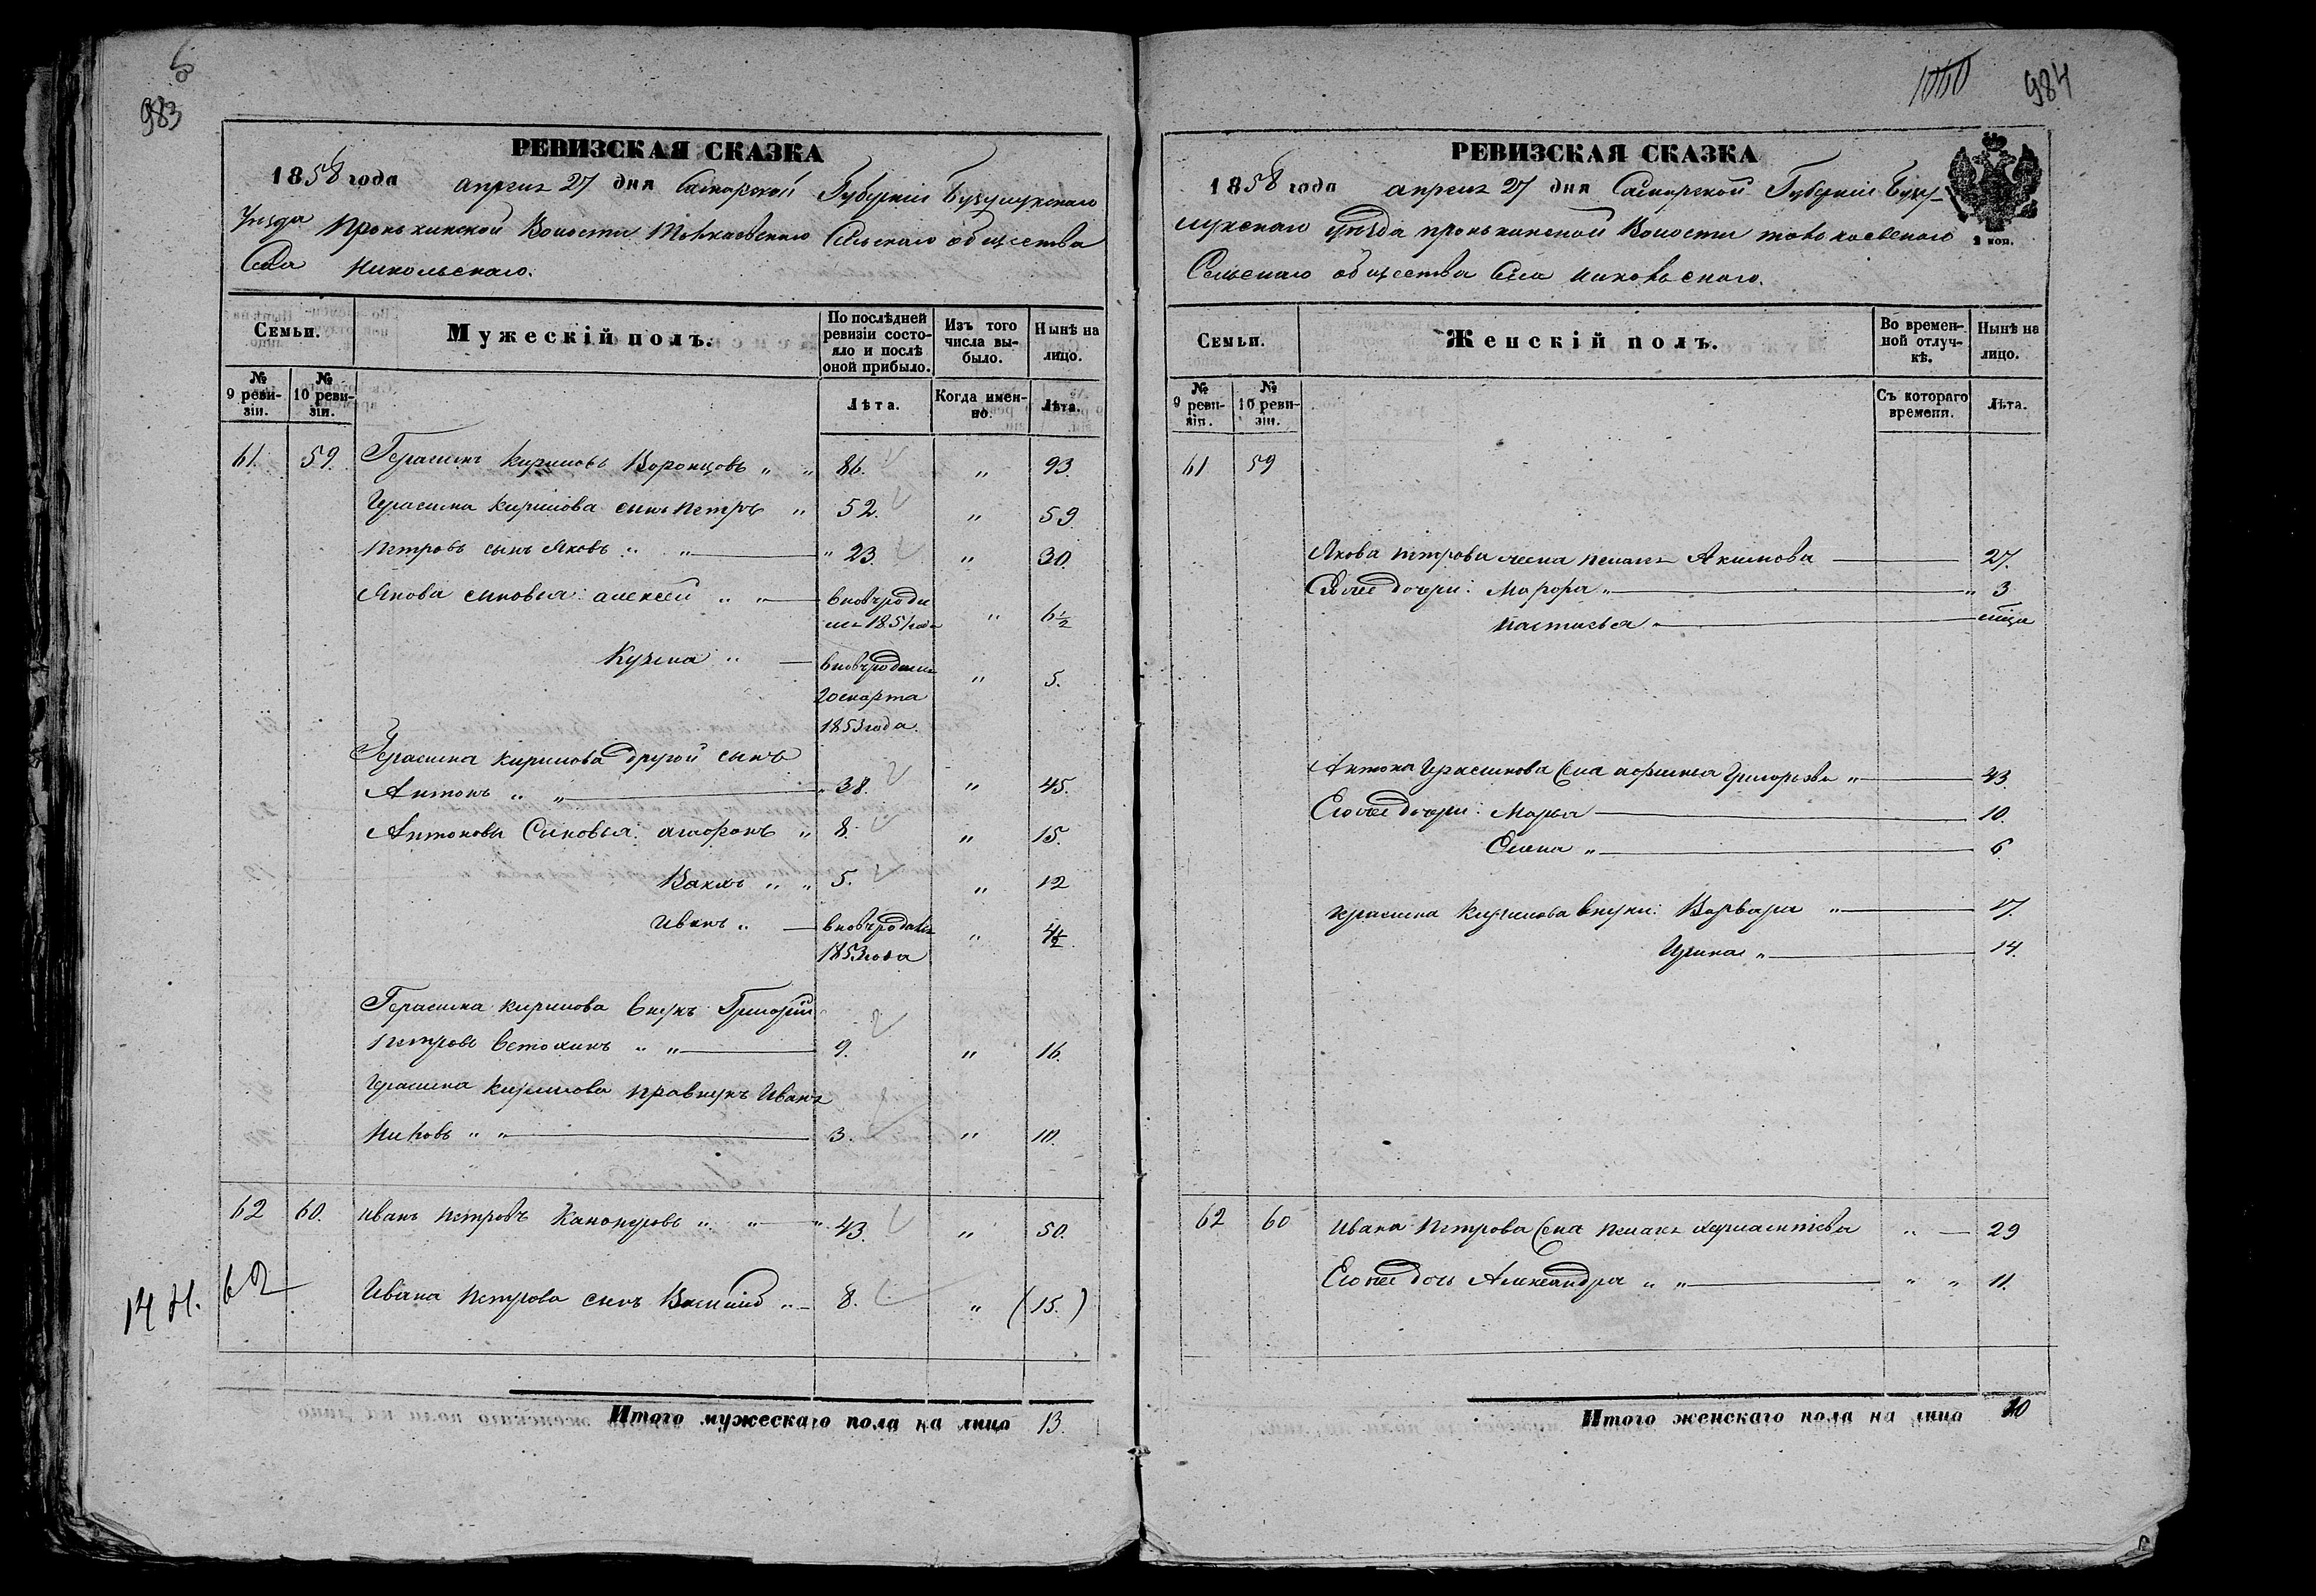 983
РЕВИЗСКАЯ СКАЗКА
1858 года апреля 27 дня Самарской Губернiи Бузулукскаго
Уезда Пронькинской Волости Сельскаго общества
Села Никольскаго.
Семьи.
Мужескiй полъ.
По послѣдней ревизiи состояло и послѣ оной прибыло.
Изъ того числа выбыло.
Нынѣ на лицо.
№ 9 ревизiи.
№ 10 ревизiи.
Лѣта.
Когда именно.
Лѣта.
61. 59. Герасимъ Кириловъ Воронцовъ " " 86. " 93.
Герасима Кирилова сынъ Петръ " 52. " 59.
Петровъ сынъ Яковъ " " 23. " 30.
Якова сыновья: алексей " " вновь роди
1851 года " 6½
Кузма " вновь родил
20 марта " 5.
1853 года.
Герасима Кирилова другой сынъ
Антонъ " " 38. " 45.
Антоновы Сыновья: " 8. " 15.
" " 5. " 12
Иванъ " вновь родил " 4½
1853 года
Герасима Кирилова внукъ Григорiй
Петровъ " " 9. " 16.
Герасима Кирилова правнукъ Иванъ
" " 3. " 10.
62 60. иванъ Петровъ " " " 43. " 50.
62
14 Н.
Ивана Петрова сынъ Василiй " 8. " (15.)
Итого мужескаго пола на лицо 13.
1060 984
РЕВИЗСКАЯ СКАЗКА
1858 года апреля 27 дня Самарской Губернiи Бузу-
лукскаго уѣзда пронькинской Волости
Сельскаго общества Села никольскаго.
2 коп.
Семьи.
Женскiй полъ.
Во временной отлучкѣ.
Нынѣ на лицо.
№ 9 ревизiи.
№ 10 ревизiи.
Съ котораго времени.
Лѣта.
61 59
Якова петрова жена Акимова 27.
Ево же дочери: Марфа " " 3
настасья "
Антона Герасимова Жена Григорьева " 43.
Ево же дочери: Марья 10.
Елена " 6.
Герасима Кирилова внуки: Варвара " 17.
Ирина " 14.
62 60 Ивана Петрова Жена " 29
Ево же дочь Александра " " " " 11.
Итого женскаго пола на лицо 10